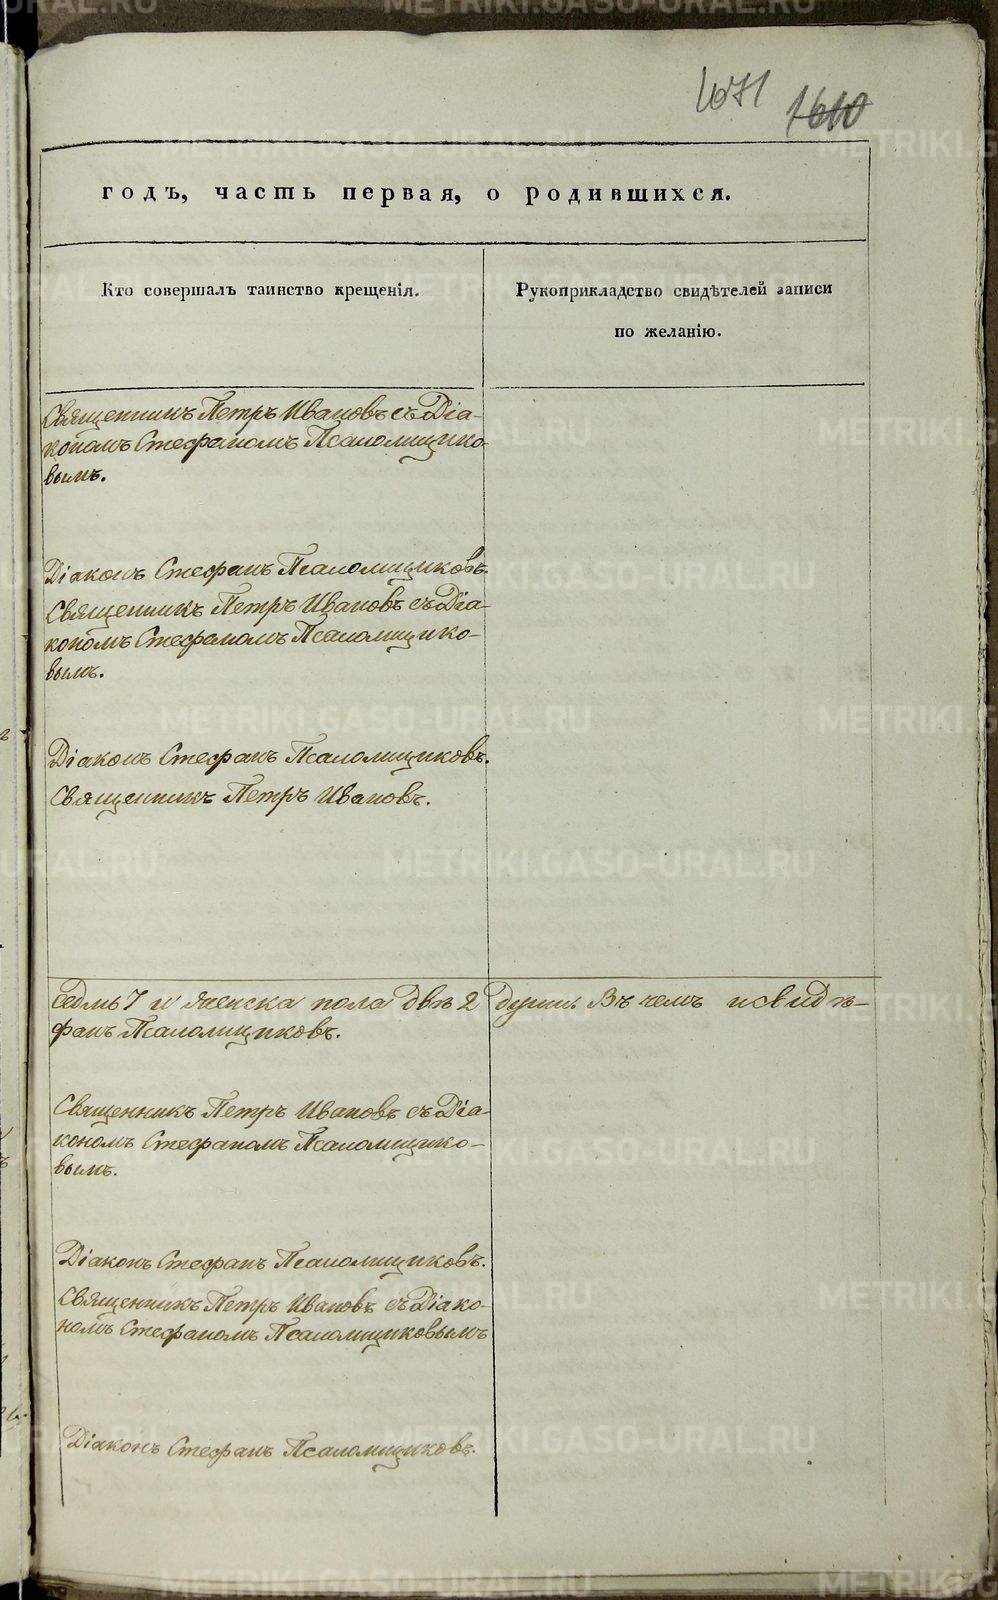 1071 1610
годъ, часть первая, о родившихся.
Кто совершалъ таинство крещенія.
Рукоприкладство свидѣтелей записи
по желанію.
Священникъ Петръ Ивановъ съ Діа-
кономъ Стефаномъ Псаломщико-
вымъ.
Діаконъ Стефанъ Псаломщиковъ.
Священникъ Петръ Ивановъ съ Діа-
кономъ Стефаномъ Псаломщико-
вымъ.
Діаконъ Стефанъ Псаломщиковъ.
Священникъ Петръ Ивановъ.
седмь 7 и женска пола двѣ 2 души. Въ чемъ и свидѣ-
фанъ Псаломщиковъ.
Священникъ Петръ Ивановъ съ Діа-
кономъ Стефаномъ Псаломщико-
вымъ.
Діаконъ Стефанъ Псаломщиковъ.
Священникъ Петръ Ивановъ съ Діако-
номъ Стефаномъ Псаломщиковымъ
Діаконъ Стефанъ Псаломщиковъ.
METRIKI.GASO-URAL.RU